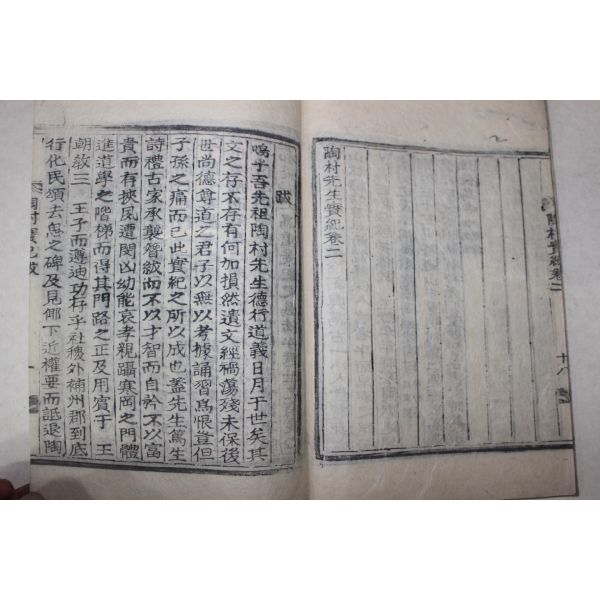 陶村先生實紀卷二
十八
跋
嗚乎吾先祖陶村先生德行道義日月于世矣其
文之存不存有何加損然遺文經禍蕩殘未保後
世尚德尊道之君子以無以考據誦習爲恨豈但
子孫之痛而已此實紀之所以成也盖先生篤生
詩禮古家承襲簪紱而不以才智而自矜不以富
貴而有挾夙遭閔凶幼能哀孝親躡寒岡之門體
進道學之階梯而得其門路之正及用賓于 王
朝教三 王子而薄迪功存乎社稷外補州郡到底
行化民頌去思之碑及見鄉下近權要而詆退陶
陶村實紀跋